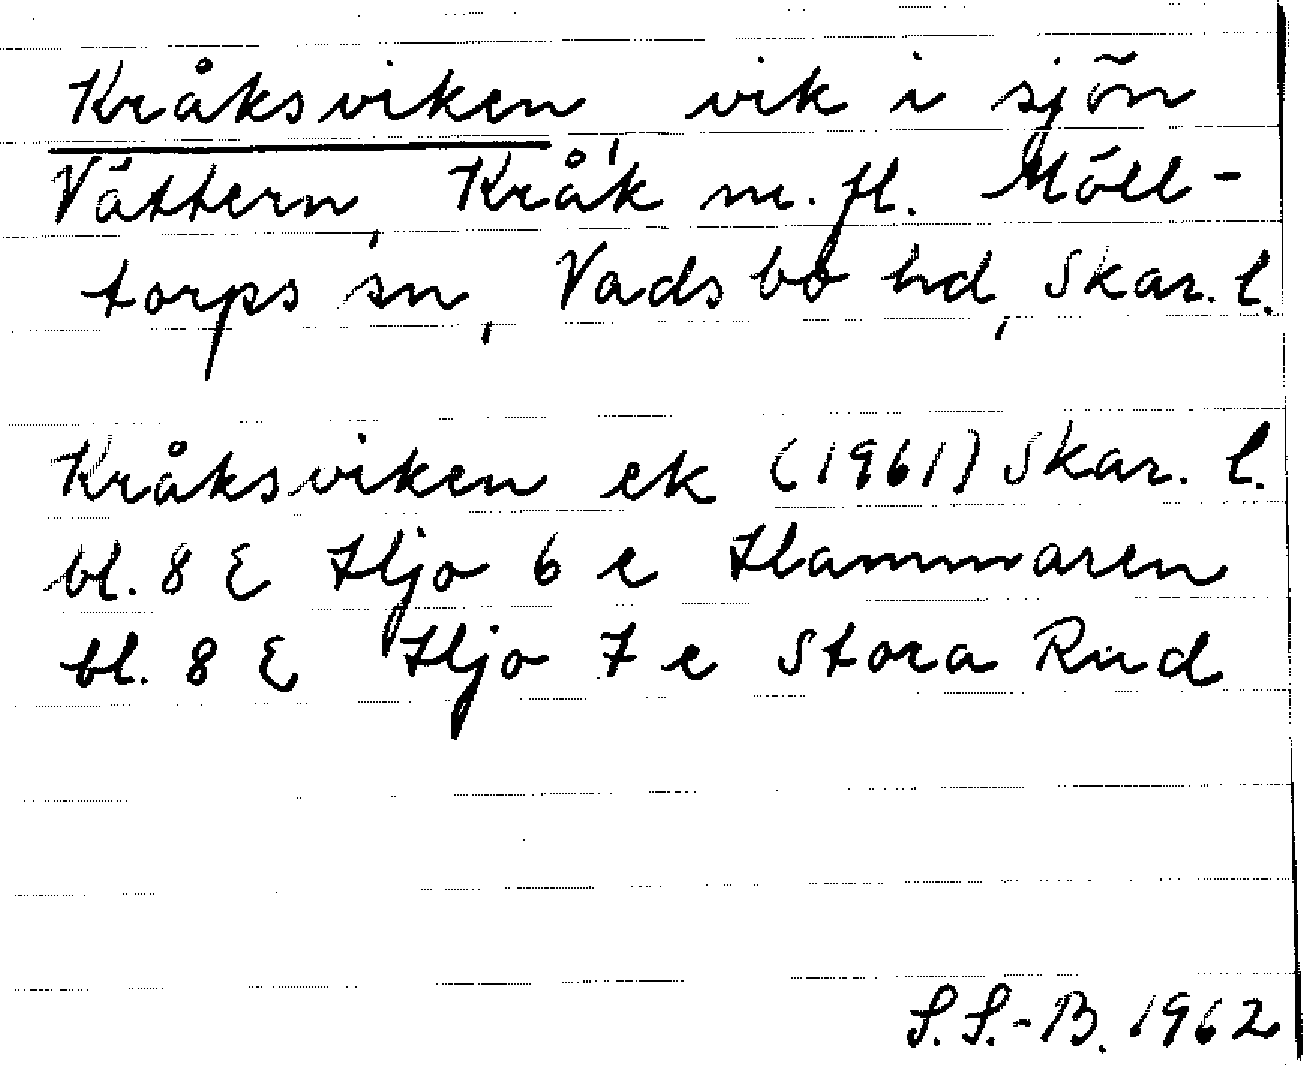 Kråksviken, vik i sjön
Vättern, Kråk m.fl. Möll-
torps sn, Vadsbo hd, Skar. l.
Kråksviken ek (1961) Skar. l.
bl. 8 E Hjo 6 e Hammaren
bl. 8 E Hjo 7 e Stora Rud
S.S.-B. 1962